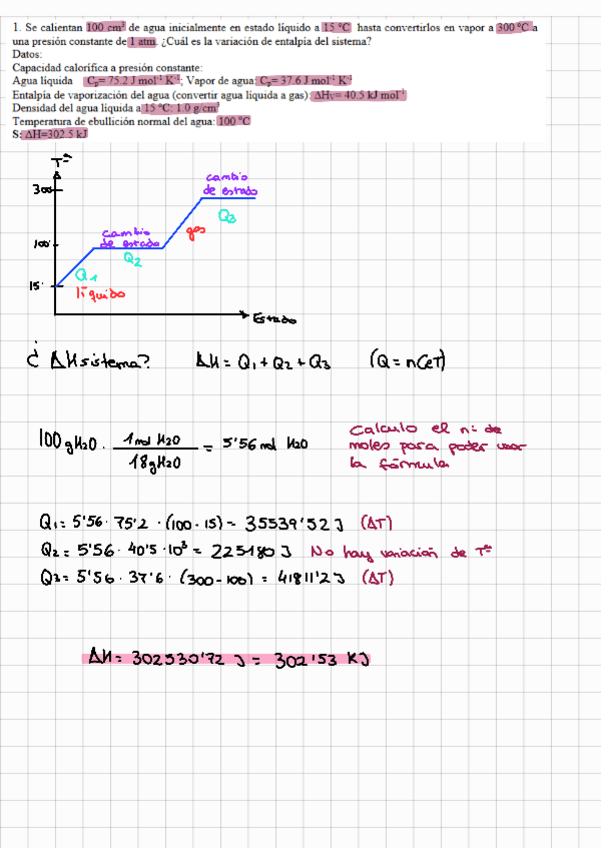 1. Se calientan 100 cm³ de agua inicialmente en estado líquido a 15 ºC hasta convertirlos en vapor a 300 ºC a
una presión constante de 1 atm. ¿Cuál es la variación de entalpía del sistema?
Datos:
Capacidad calorífica a presión constante:
Agua líquida Cₚ= 75.2 J mol⁻¹ K⁻¹; Vapor de agua: Cₚ= 37.6 J mol⁻¹ K⁻¹
Entalpía de vaporización del agua (convertir agua líquida a gas): ΔHᵥ= 40.5 kJ mol⁻¹
Densidad del agua líquida a 15 ºC: 1.0 g/cm³
Temperatura de ebullición normal del agua: 100 ºC
S: ΔH=302.5 kJ
Tª
300
cambio
de estado
Q3
gas
100
cambio
de estado
Q2
15
Q1
líquido
Estado
¿ ΔH sistema? ΔH = Q1 + Q2 + Q3 (Q = nCeT)
100 g H2O · 1 mol H2O / 18 g H2O = 5'56 mol H2O
Calculo el nº de
moles para poder usar
la fórmula
Q1 = 5'56 · 75'2 · (100 - 15) = 35539'52 J (ΔT)
Q2 = 5'56 · 40'5 · 10³ = 225180 J No hay variación de Tª
Q3 = 5'56 · 37'6 · (300 - 100) = 41811'2 J (ΔT)
ΔH = 302530'72 J = 302'53 KJ